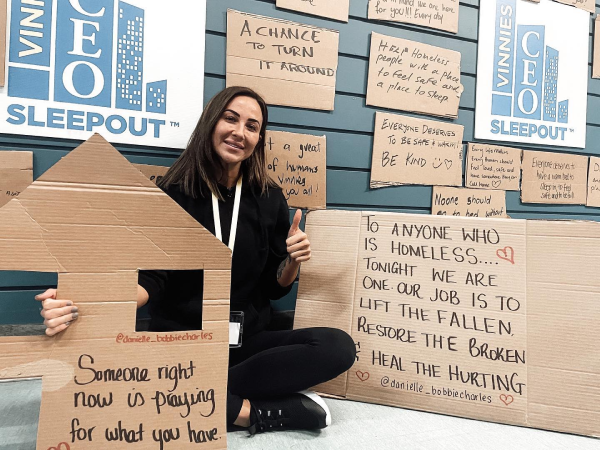 VINNIES
CEO
SLEEPOUT™
A CHANCE
TO TURN
IT AROUND
in mind we are here
for you!!! Everyday
Help Homeless
people with a place
to feel safe and
a place to sleep.
VINNIES
CEO
SLEEPOUT™
EVERYONE DESERVES
TO BE SAFE
BE KIND
a great
of humans
Vinnies
you all!
Everyone Deserves
safe and
Noone should
go to bed without
@danielle_bobbiecharles
Someone right
now is praying
for what you have.
TO ANYONE WHO
IS HOMELESS....
TONIGHT WE ARE
ONE. OUR JOB IS TO
LIFT THE FALLEN,
RESTORE THE BROKEN
& HEAL THE HURTING
@danielle_bobbiecharles